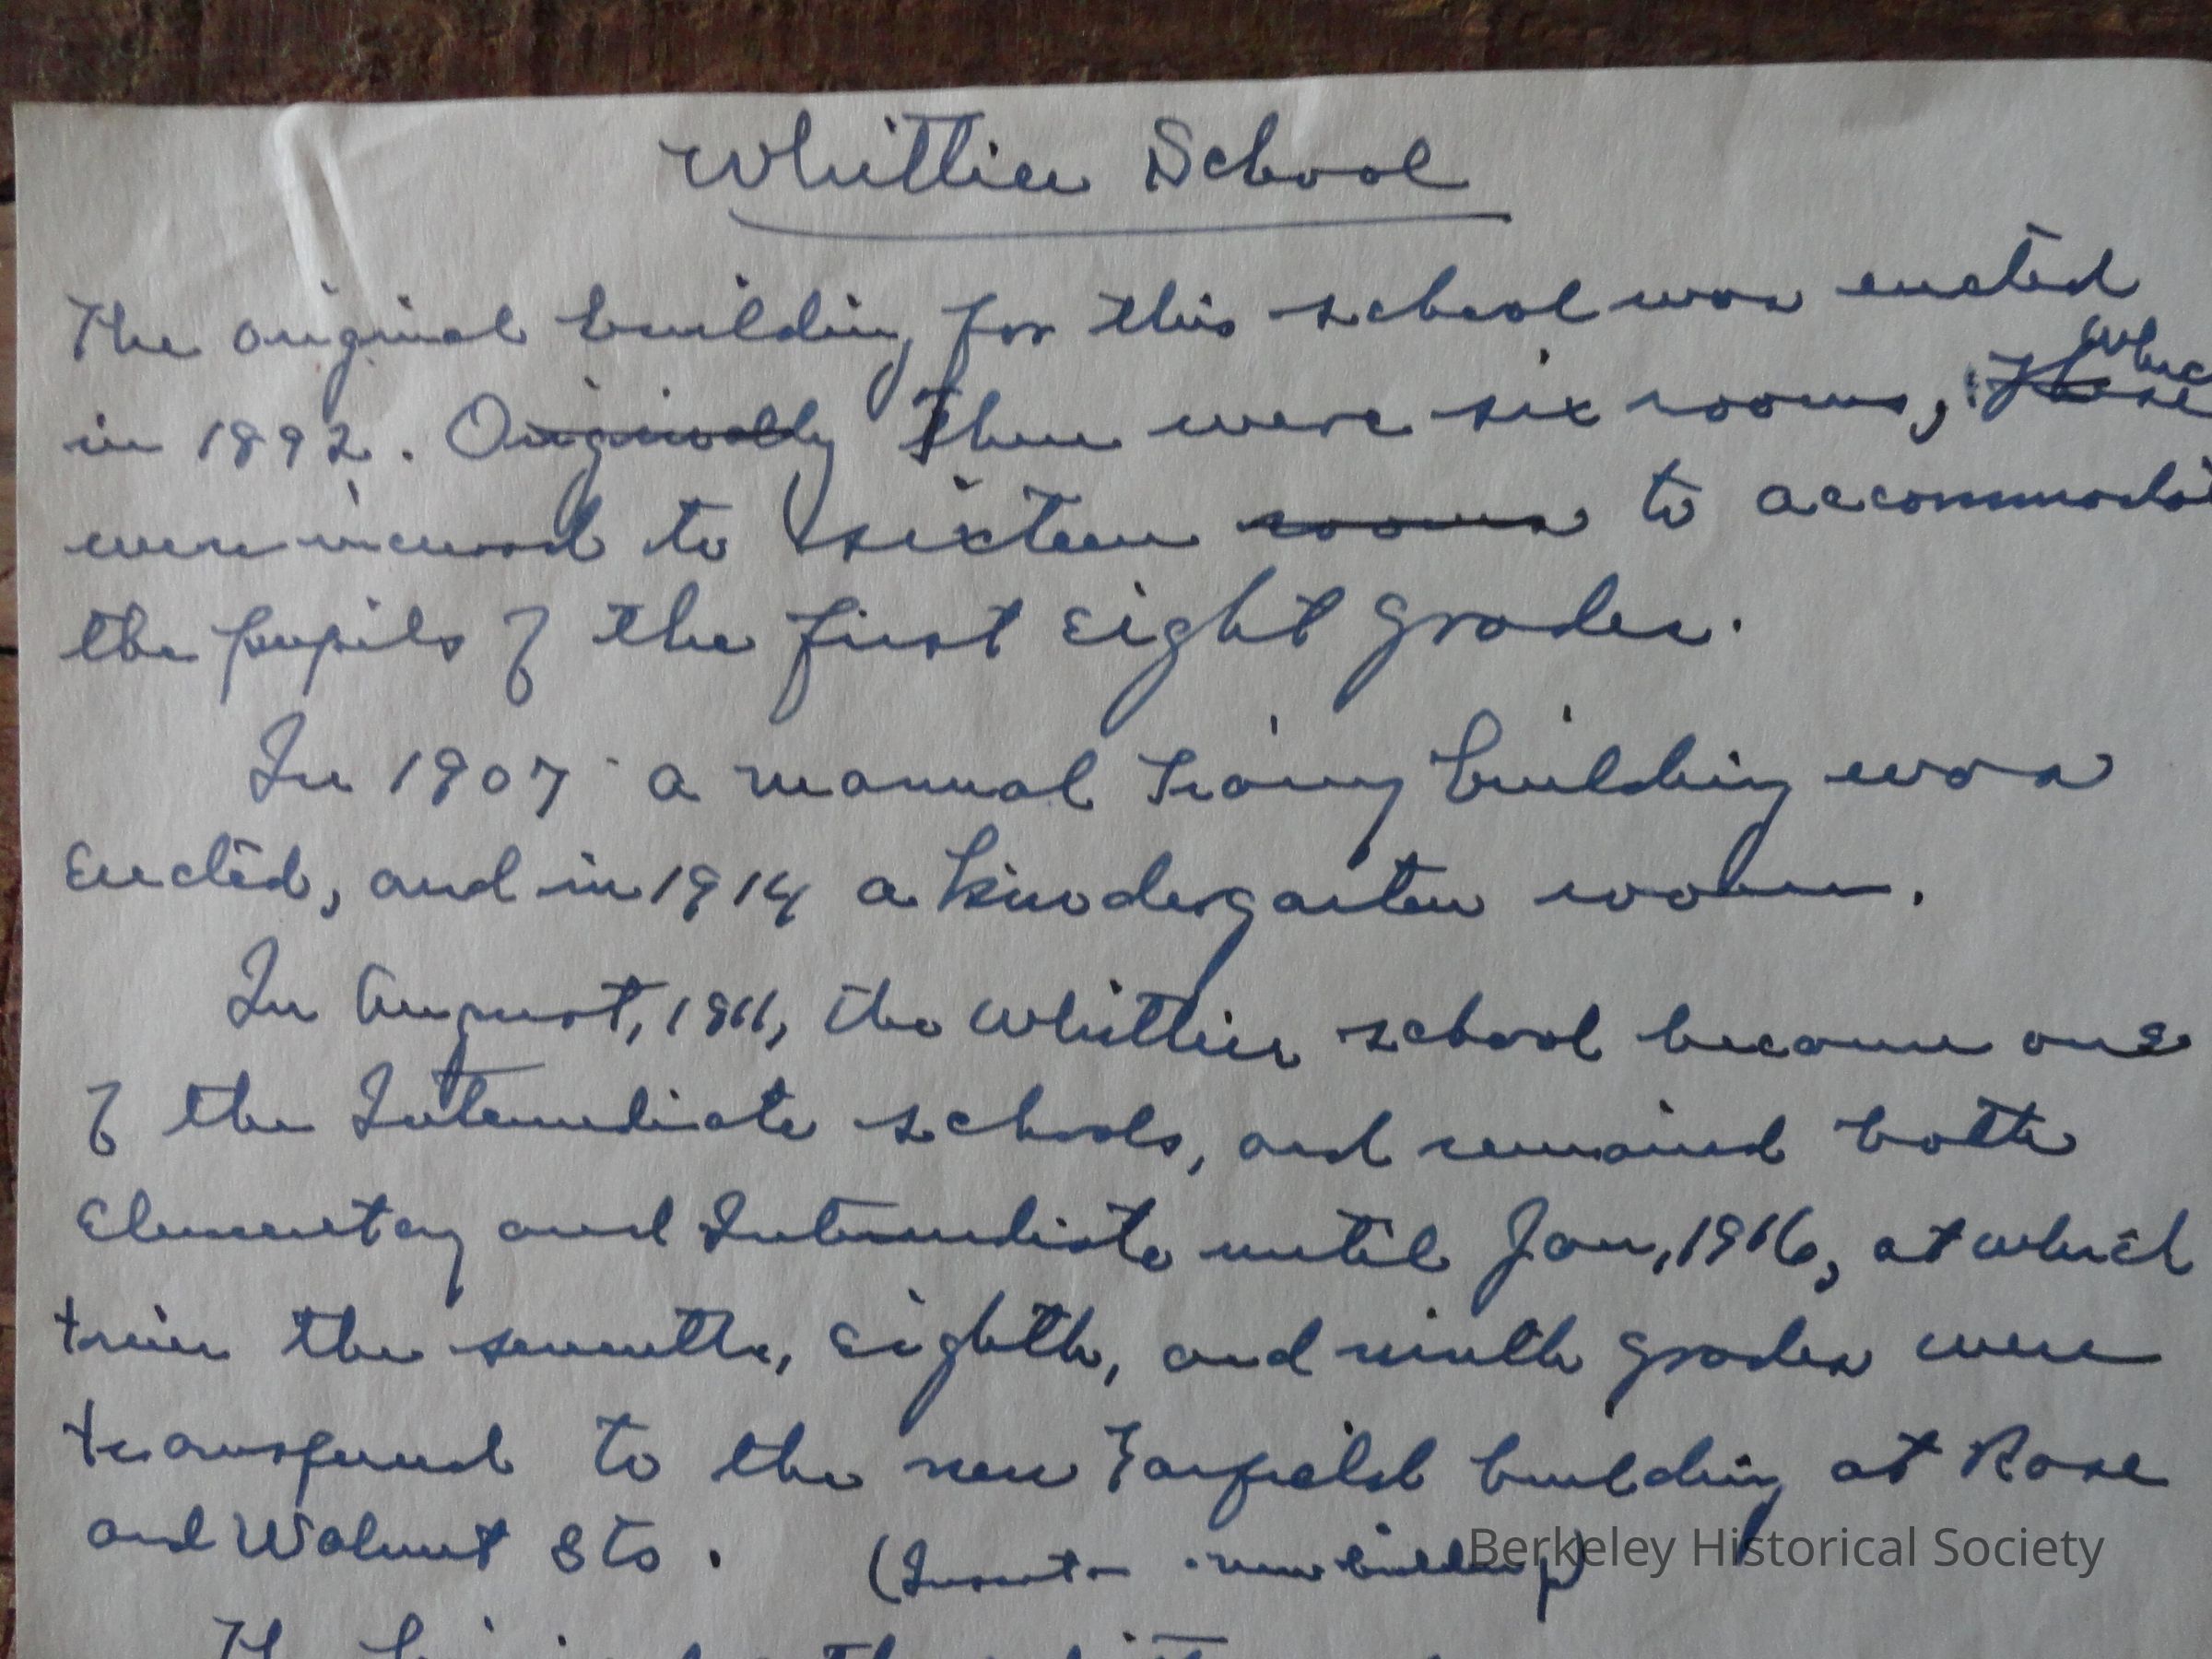 Whittier School
The original building for this school was erected
in 1892. Originally There were six rooms, These which
were increased to sixteen rooms to accommodat
the pupils of the first eight grades.
In 1907 a manual traing building was
erected, and in 1914 a kindergarten room.
In August, 1911, the Whittier school became one
of the Intermediate schools, and remained both
Elementary and Intermediate until Jan, 1916, at which
time the seventh, eighth, and ninth grades were
transferred to the new Garfield building at Rose
and Walnut Sts. (Insert - new building)
Berkeley Historical Society